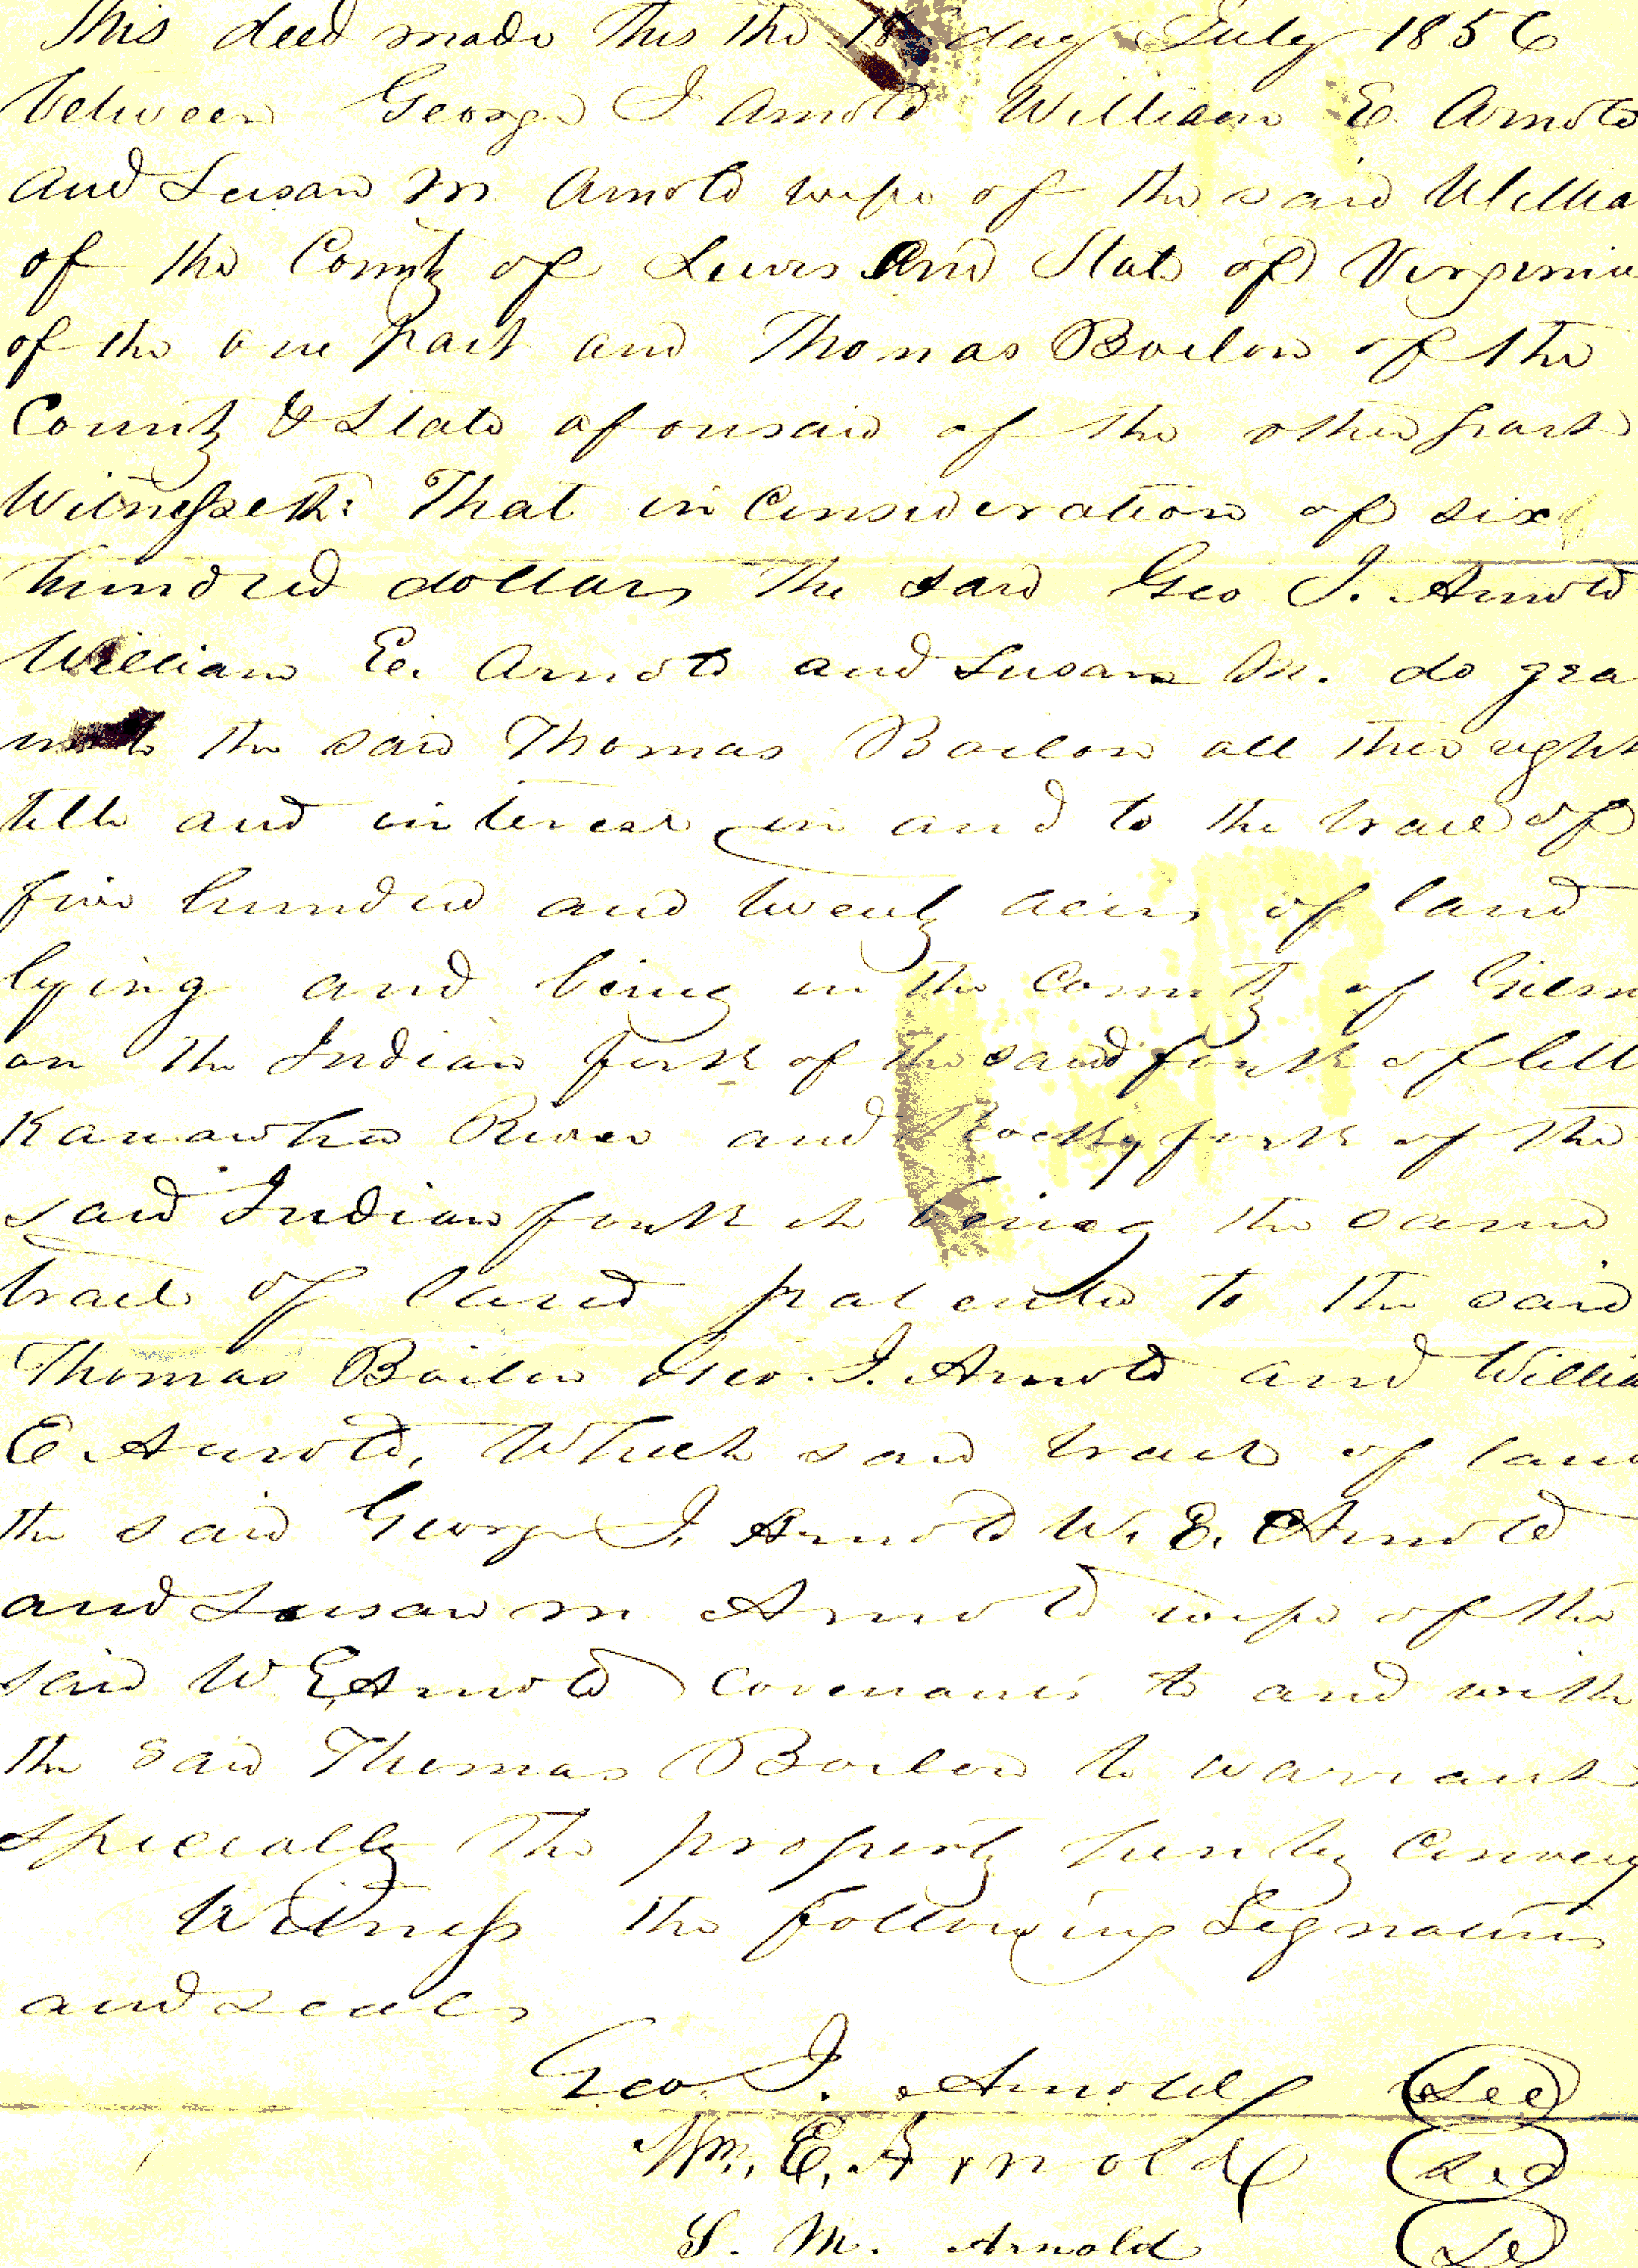 This deed made this the 18 day July 1856
between George J. Arnold William E. Arnold
and Susan M Arnold wife of the said Willia
of the County of Lewis and State of Virginia
of the one part and Thomas Boilon of the
County & State aforesaid of the other part
Witnesseth: That in Consideration of six
hundred dollars the said Geo J. Arnold
William E. Arnold and Susan M. do gra
unto the said Thomas Boilon all their right
title and interest in and to the tract of
five hundred and twenty acres of land
lying and being in the County of Gilm
on the Indian fork of the sand fork of litt
Kanawha River and Rocky fork of the
said Indian fork it being the same
tract of land patented to the said
Thomas Boilon Geo. J. Arnold and Willia
E Arnold, Which said tract of lan
the said George J. Arnold W. E. Arnold
and Susan M Arnold wife of the
said W E Arnold covenants to and with
the said Thomas Boilon to warrant
specially the property hereby convey
Witness the following Signatures
and seals
Geo. J. Arnold See
Wm. E. Arnold
S. M. Arnold